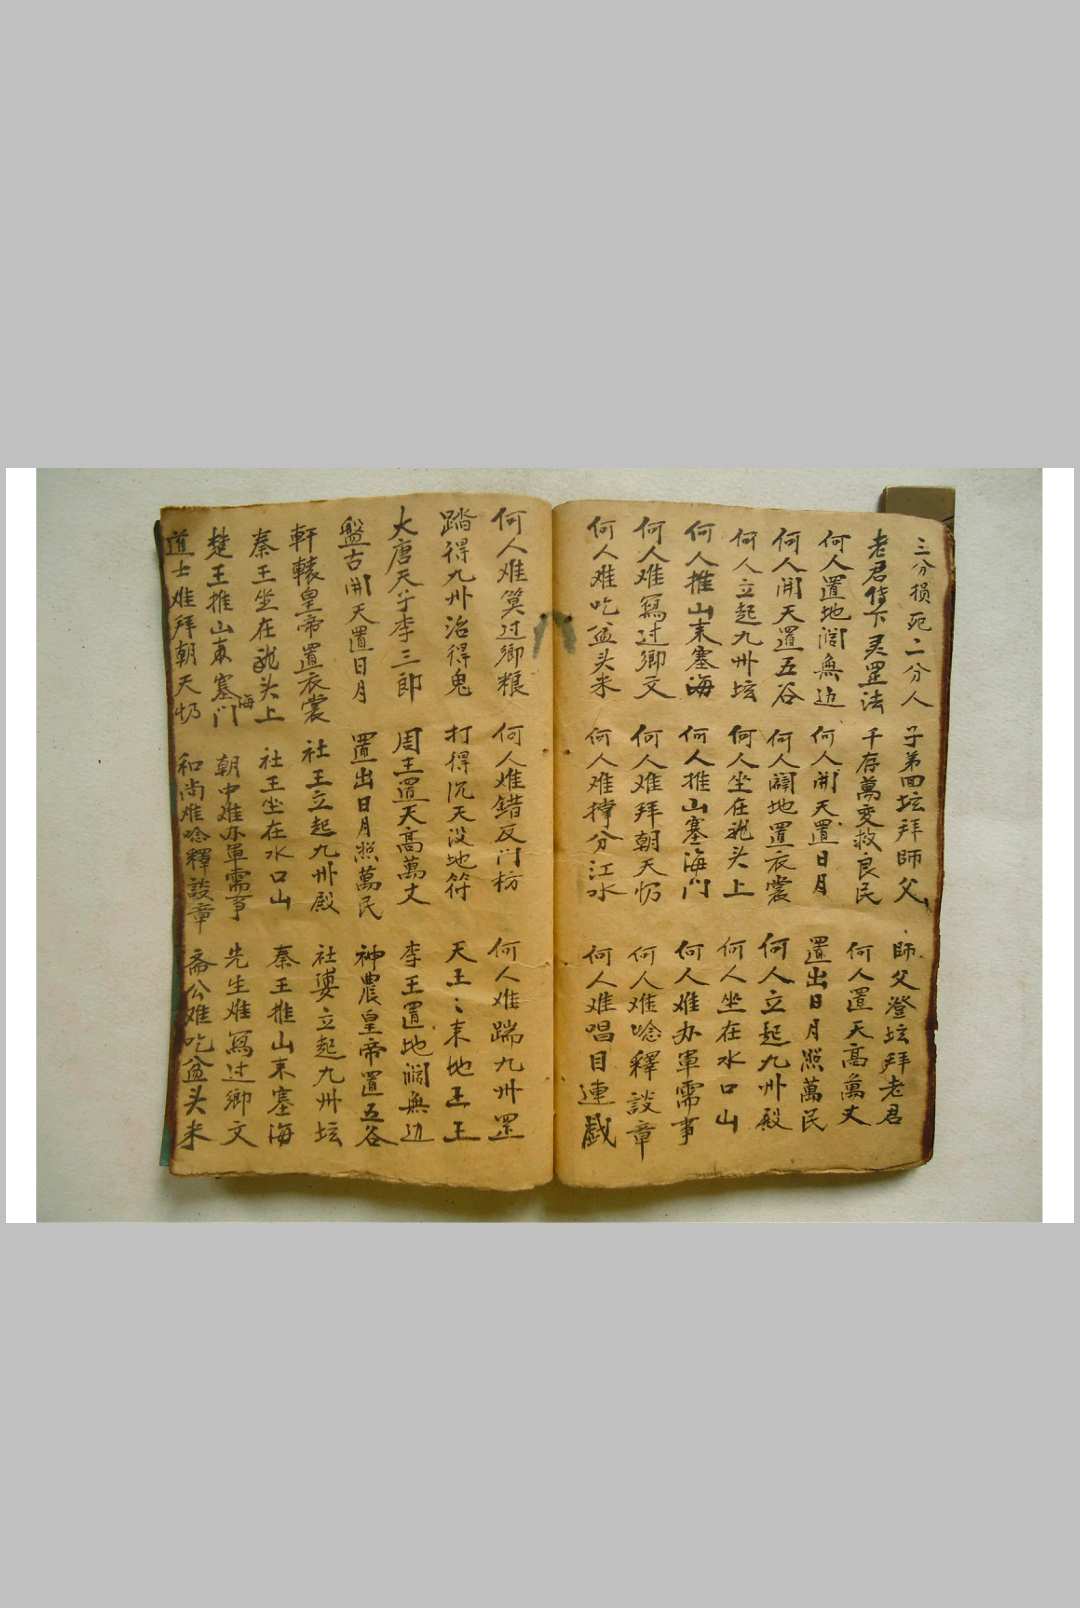 三分损死二分人 子弟回坛拜師父 師父澄坛拜老君
老君貨下灵罡法 千存萬变救良民 何人置天高萬丈
何人置地濶無边 何人開天置日月 置出日月照萬民
何人開天置五谷 何人闢地置衣裳 何人立起九州殿
何人立起九州坛 何人坐在龍头上 何人坐在水口山
何人推山来塞海 何人推山塞海门 何人难办軍需事
何人难寫过卿文 何人难拜朝天 何人难唸釋談章
何人难吃盆头米 何人难撑分江水 何人难唱目連戯
何人难算过卿粮 何人难錯反门枋 何人难踹九州罡
踏得九州治得鬼 打得沉天没地符 天王〻来地王王
大唐天子李三郎 周王置天高萬丈 李王置地濶無边
盤古開天置日月 置出日月照萬民 神農皇帝置五谷
軒轅皇帝置衣裳 社王立起九州殿 社婆立起九州坛
秦王坐在龍头上 社王坐在水口山 秦王推山来塞海
楚王推山来塞海门 朝中难办軍需事 先生难寫过卿文
道士难拜朝天 和尚难唸釋談章 斋公难吃盆头米